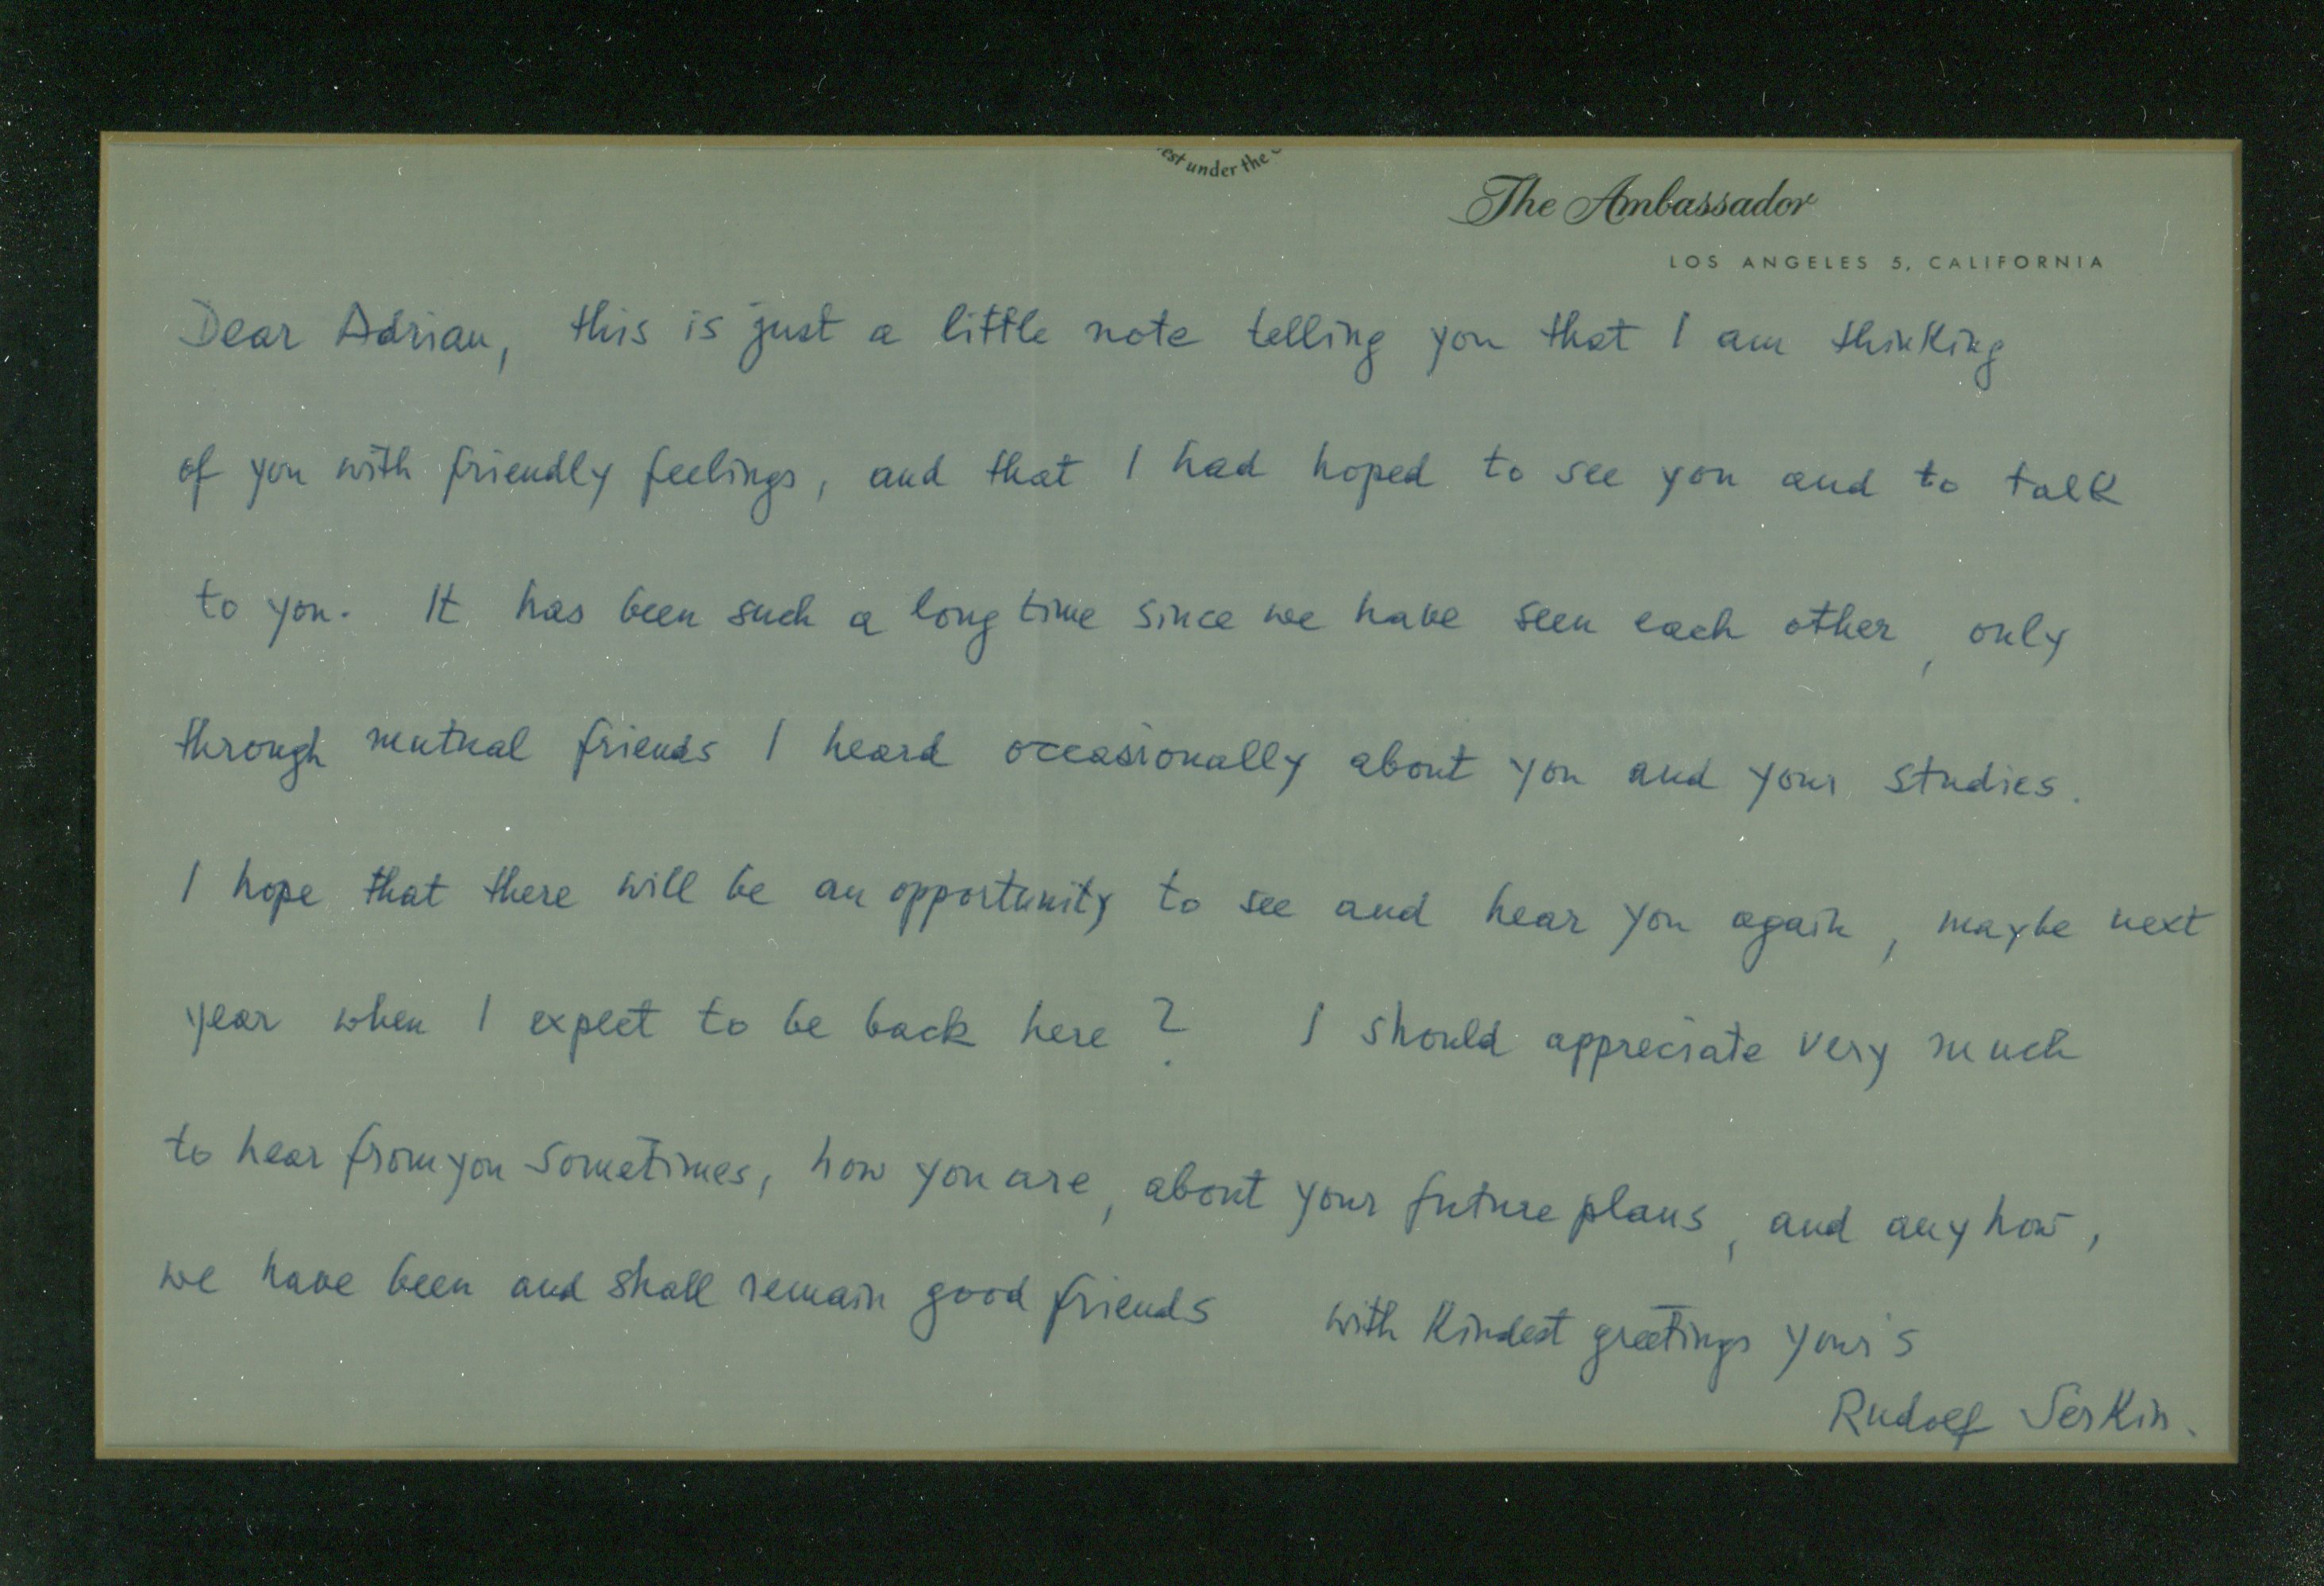 est under the
The Ambassador
LOS ANGELES 5, CALIFORNIA
Dear Adrian, this is just a little note telling you that I am thinking
of you with friendly feelings, and that I had hoped to see you and to talk
to you. It has been such a long time since we have seen each other, only
through mutual friends I heard occasionally about you and your studies.
I hope that there will be an opportunity to see and hear you again, maybe next
year when I expect to be back here? I should appreciate very much
to hear from you sometimes, how you are, about your future plans, and anyhow,
we have been and shall remain good friends with kindest greetings your's
Rudolf Serkin.